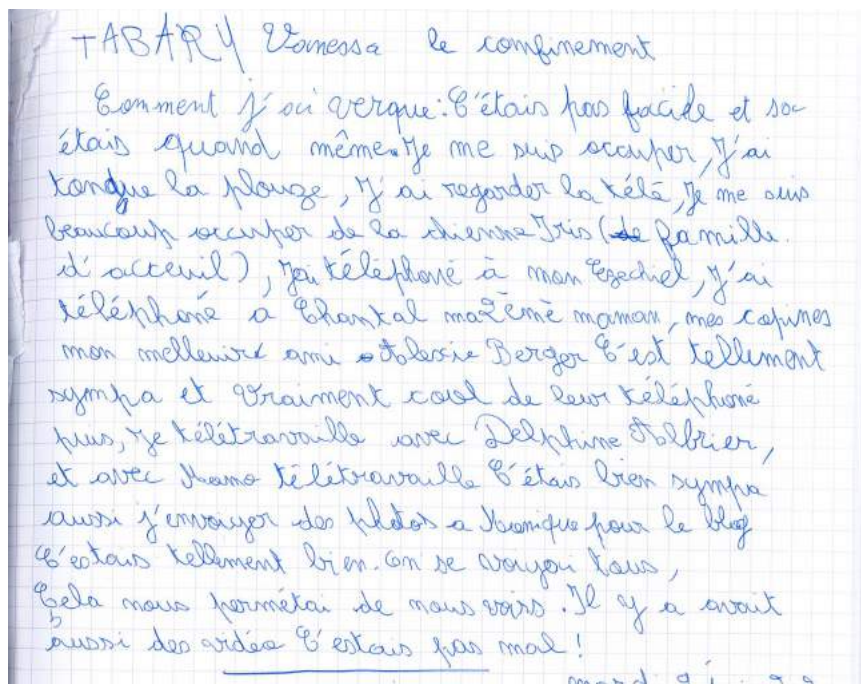 TABARY Vanessa le confinement
Comment j'ai verque: C'étais pas facile et sa
étais quand même. Je me suis occuper, J'ai
tondue la plouze, J'ai regarder la télé, Je me suis
beaucoup occuper de la chienne Iris (de famille
d'acceuil), J'ai téléphoné à mon Ezechiel, J'ai
téléphoné a Chantal ma 2ème maman, mes copines
mon melleuire ami Alexie Berger C'est tellement
sympa et Vraiment cool de leur téléphoné
puis, Je télétravaille avec Delphine Albrier,
et avec Mano télétravaille C'étais bien sympa
aussi j'envoyer des photos a Monique pour le blog
C'estais tellement bien. on se voyoi tous,
Cela nous permétai de nous voirs. Il y a avait
aussi des vidéo C'estais pas mal!